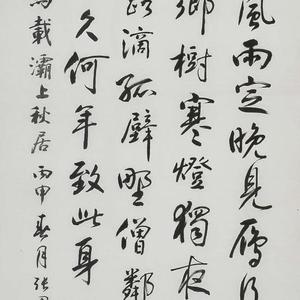 風雨定晚見鴈行
鄉樹寒燈獨夜
露滴孤壁野僧鄰
久何年致此身
馬載灞上秋居 丙申春月張